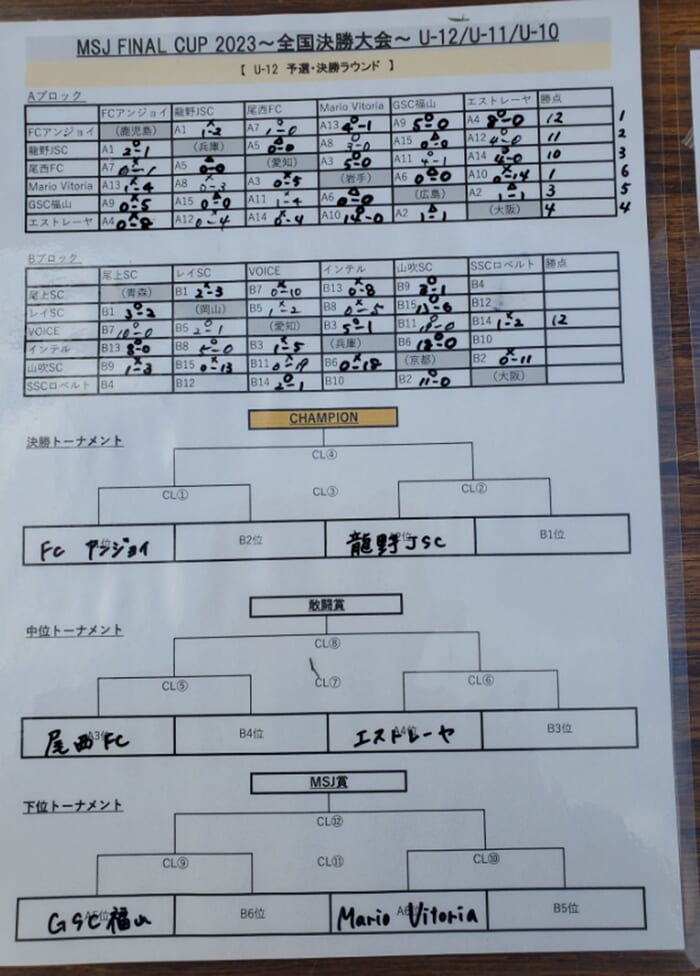 MSJ FINAL CUP 2023～全国決勝大会～ U-12/U-11/U-10
【 U-12 予選・決勝ラウンド 】
Aブロック
FCアンジョイ 龍野JSC 尾西FC Mario Vitoria GSC福山 エストレーヤ 勝点
FCアンジョイ (鹿児島) A1 × 1-2 A7 ○ 1-0 A13 ○ 4-1 A9 ○ 5-0 A4 ○ 8-0 12 1
龍野JSC A1 ○ 2-1 (兵庫) A5 △ 0-0 A8 ○ 3-0 A15 △ 0-0 A12 ○ 4-0 11 2
尾西FC A7 × 0-1 A5 △ 0-0 (愛知) A3 ○ 5-0 A11 ○ 4-1 A14 ○ 4-0 10 3
Mario Vitoria A13 × 1-4 A8 × 0-3 A3 × 0-5 (岩手) A6 △ 0-0 A10 × 0-14 1 6
GSC福山 A9 × 0-5 A15 △ 0-0 A11 × 1-4 A6 △ 0-0 (広島) A2 △ 1-1 3 5
エストレーヤ A4 × 0-8 A12 × 0-4 A14 × 0-4 A10 ○ 14-0 A2 △ 1-1 (大阪) 4 4
Bブロック
尾上SC レイSC VOICE インテル 山吹SC SSCロベルト 勝点
尾上SC (青森) B1 × 2-3 B7 × 0-10 B13 × 0-8 B9 ○ 3-1 B4
レイSC B1 ○ 3-2 (岡山) B5 × 1-2 B8 × 0-5 B15 ○ B12
VOICE B7 ○ 10-0 B5 ○ 2-1 (愛知) B3 ○ 5-1 B11 ○ B14 × 1-2 12
インテル B13 ○ 8-0 B8 ○ 5-0 B3 × 1-5 (兵庫) B6 ○ 18-0 B10
山吹SC B9 × 1-3 B15 × 0-13 B11 × 0-19 B6 × 0-18 (京都) B2 × 0-11
SSCロベルト B4 B12 B14 ○ 2-1 B10 B2 ○ 11-0 (大阪)
CHAMPION
決勝トーナメント
CL④
CL① CL③ CL②
FC アンジョイ B2位 龍野JSC B1位
敢闘賞
中位トーナメント
CL⑧
CL⑤ CL⑦ CL⑥
尾西FC A3位 B4位 エストレーヤ A4位 B3位
MSJ賞
下位トーナメント
CL⑫
CL⑨ CL⑪ CL⑩
GSC福山 A5位 B6位 Mario Vitoria A6位 B5位